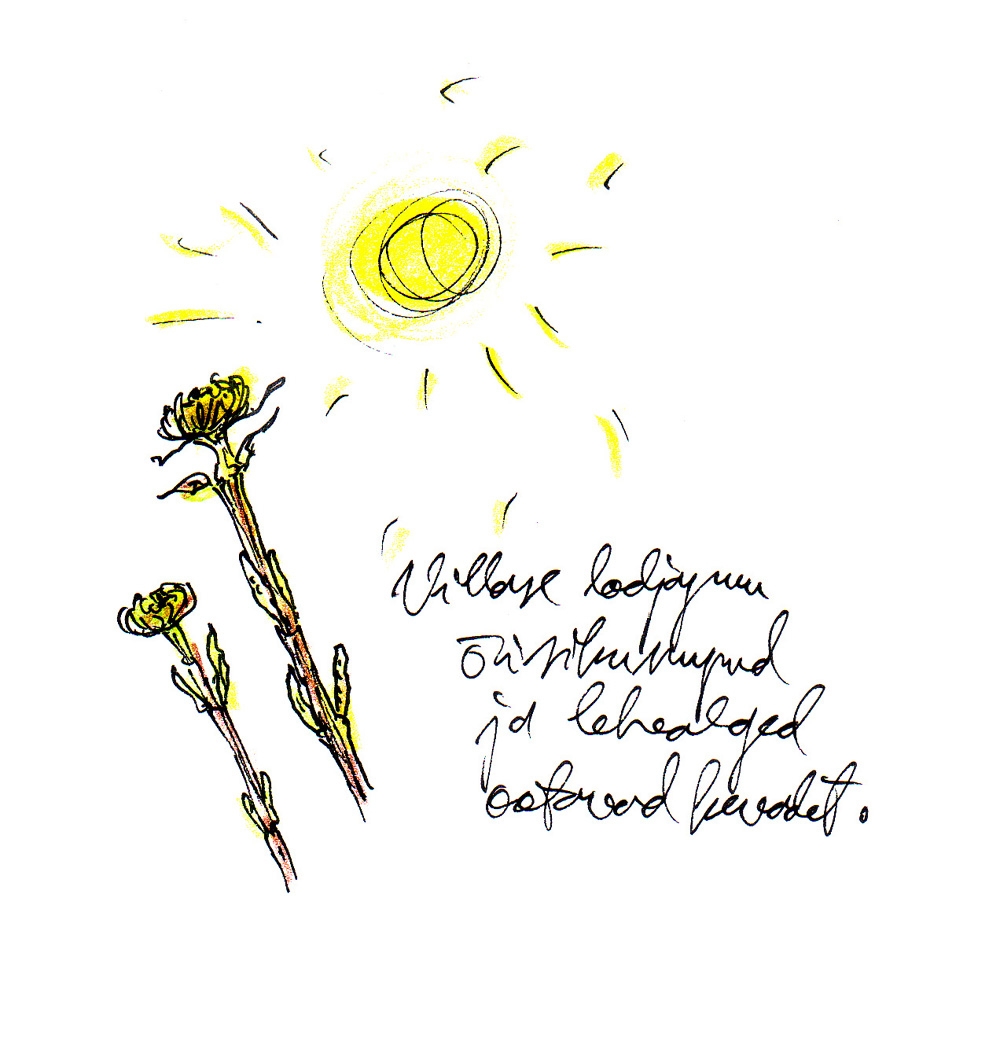 Villase lodjapuu
õisikunupud
ja lehealged
ootavad kevadet.